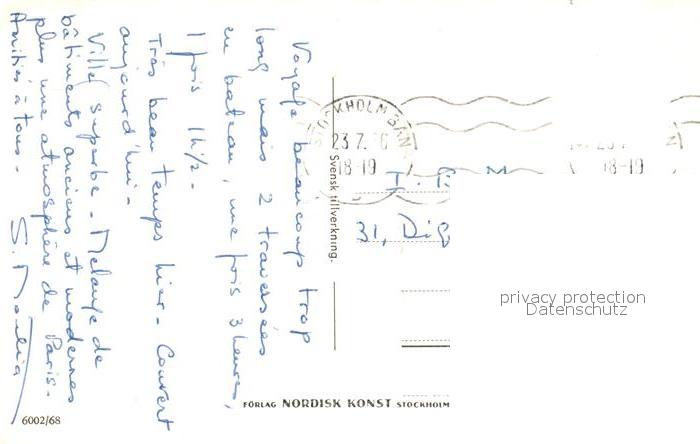 Voyage beaucoup trop
long mais 2 traversées
en bateau, une fois 3 heures,
1 fois 1h1/2 -
Très beau temps hier - Couvert
aujourd'hui -
Ville superbe - Mélange de
bâtiments anciens et modernes
plus une atmosphère de Paris -
Amitiés à tous -
STOCKHOLM BAN
23 7.
18-19
18-19
Svensk tillverkning.
31, Dig
privacy protection
Datenschutz
FÖRLAG NORDISK KONST STOCKHOLM
6002/68